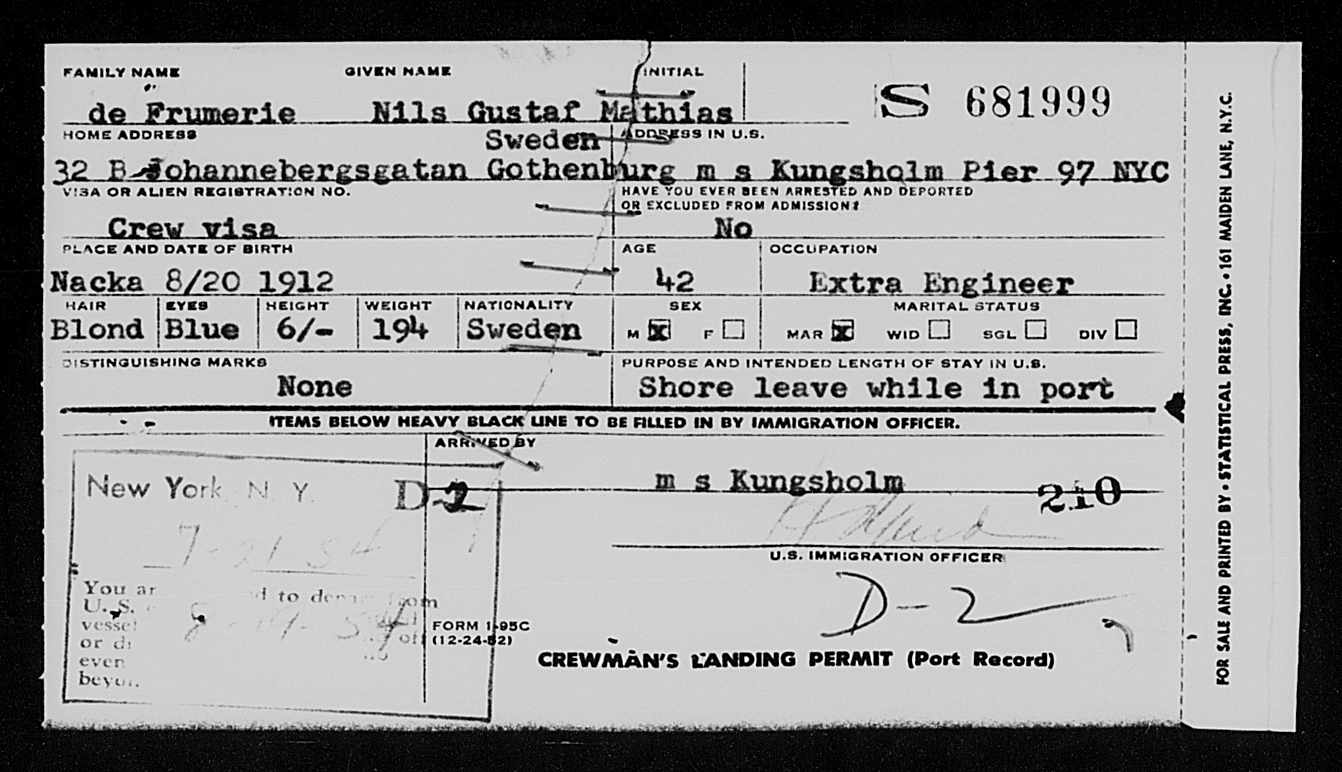 FAMILY NAME GIVEN NAME INITIAL
de Frumerie Nils Gustaf Mathias S 681999
HOME ADDRESS Sweden ADDRESS IN U.S.
32 B Johannebergsgatan Gothenburg m s Kungsholm Pier 97 NYC
VISA OR ALIEN REGISTRATION NO. HAVE YOU EVER BEEN ARRESTED AND DEPORTED
OR EXCLUDED FROM ADMISSION?
Crew visa No
PLACE AND DATE OF BIRTH AGE OCCUPATION
Nacka 8/20 1912 42 Extra Engineer
HAIR EYES HEIGHT WEIGHT NATIONALITY SEX MARITAL STATUS
Blond Blue 6/- 194 Sweden M X F MAR X WID SGL DIV
DISTINGUISHING MARKS PURPOSE AND INTENDED LENGTH OF STAY IN U.S.
None Shore leave while in port
ITEMS BELOW HEAVY BLACK LINE TO BE FILLED IN BY IMMIGRATION OFFICER.
ARRIVED BY
New York N. Y. D-2 m s Kungsholm 210
7-21-54
U.S. IMMIGRATION OFFICER
You to
U. S. from
vessel
or
8-19-54
D-2
FORM I-95C
(12-24-52)
CREWMAN'S LANDING PERMIT (Port Record)
FOR SALE AND PRINTED BY • STATISTICAL PRESS, INC. • 161 MAIDEN LANE, N.Y.C.